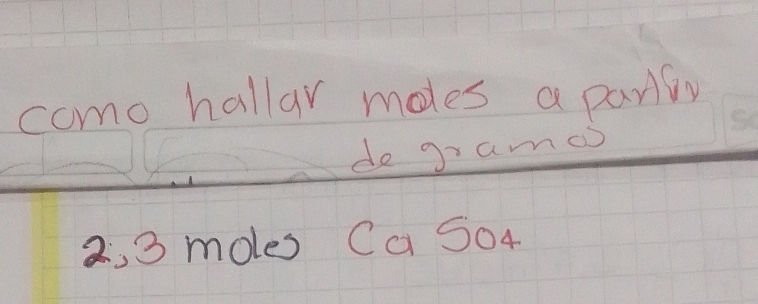 como hallar moles a partir
de gramos
2,3 moles CaSO4